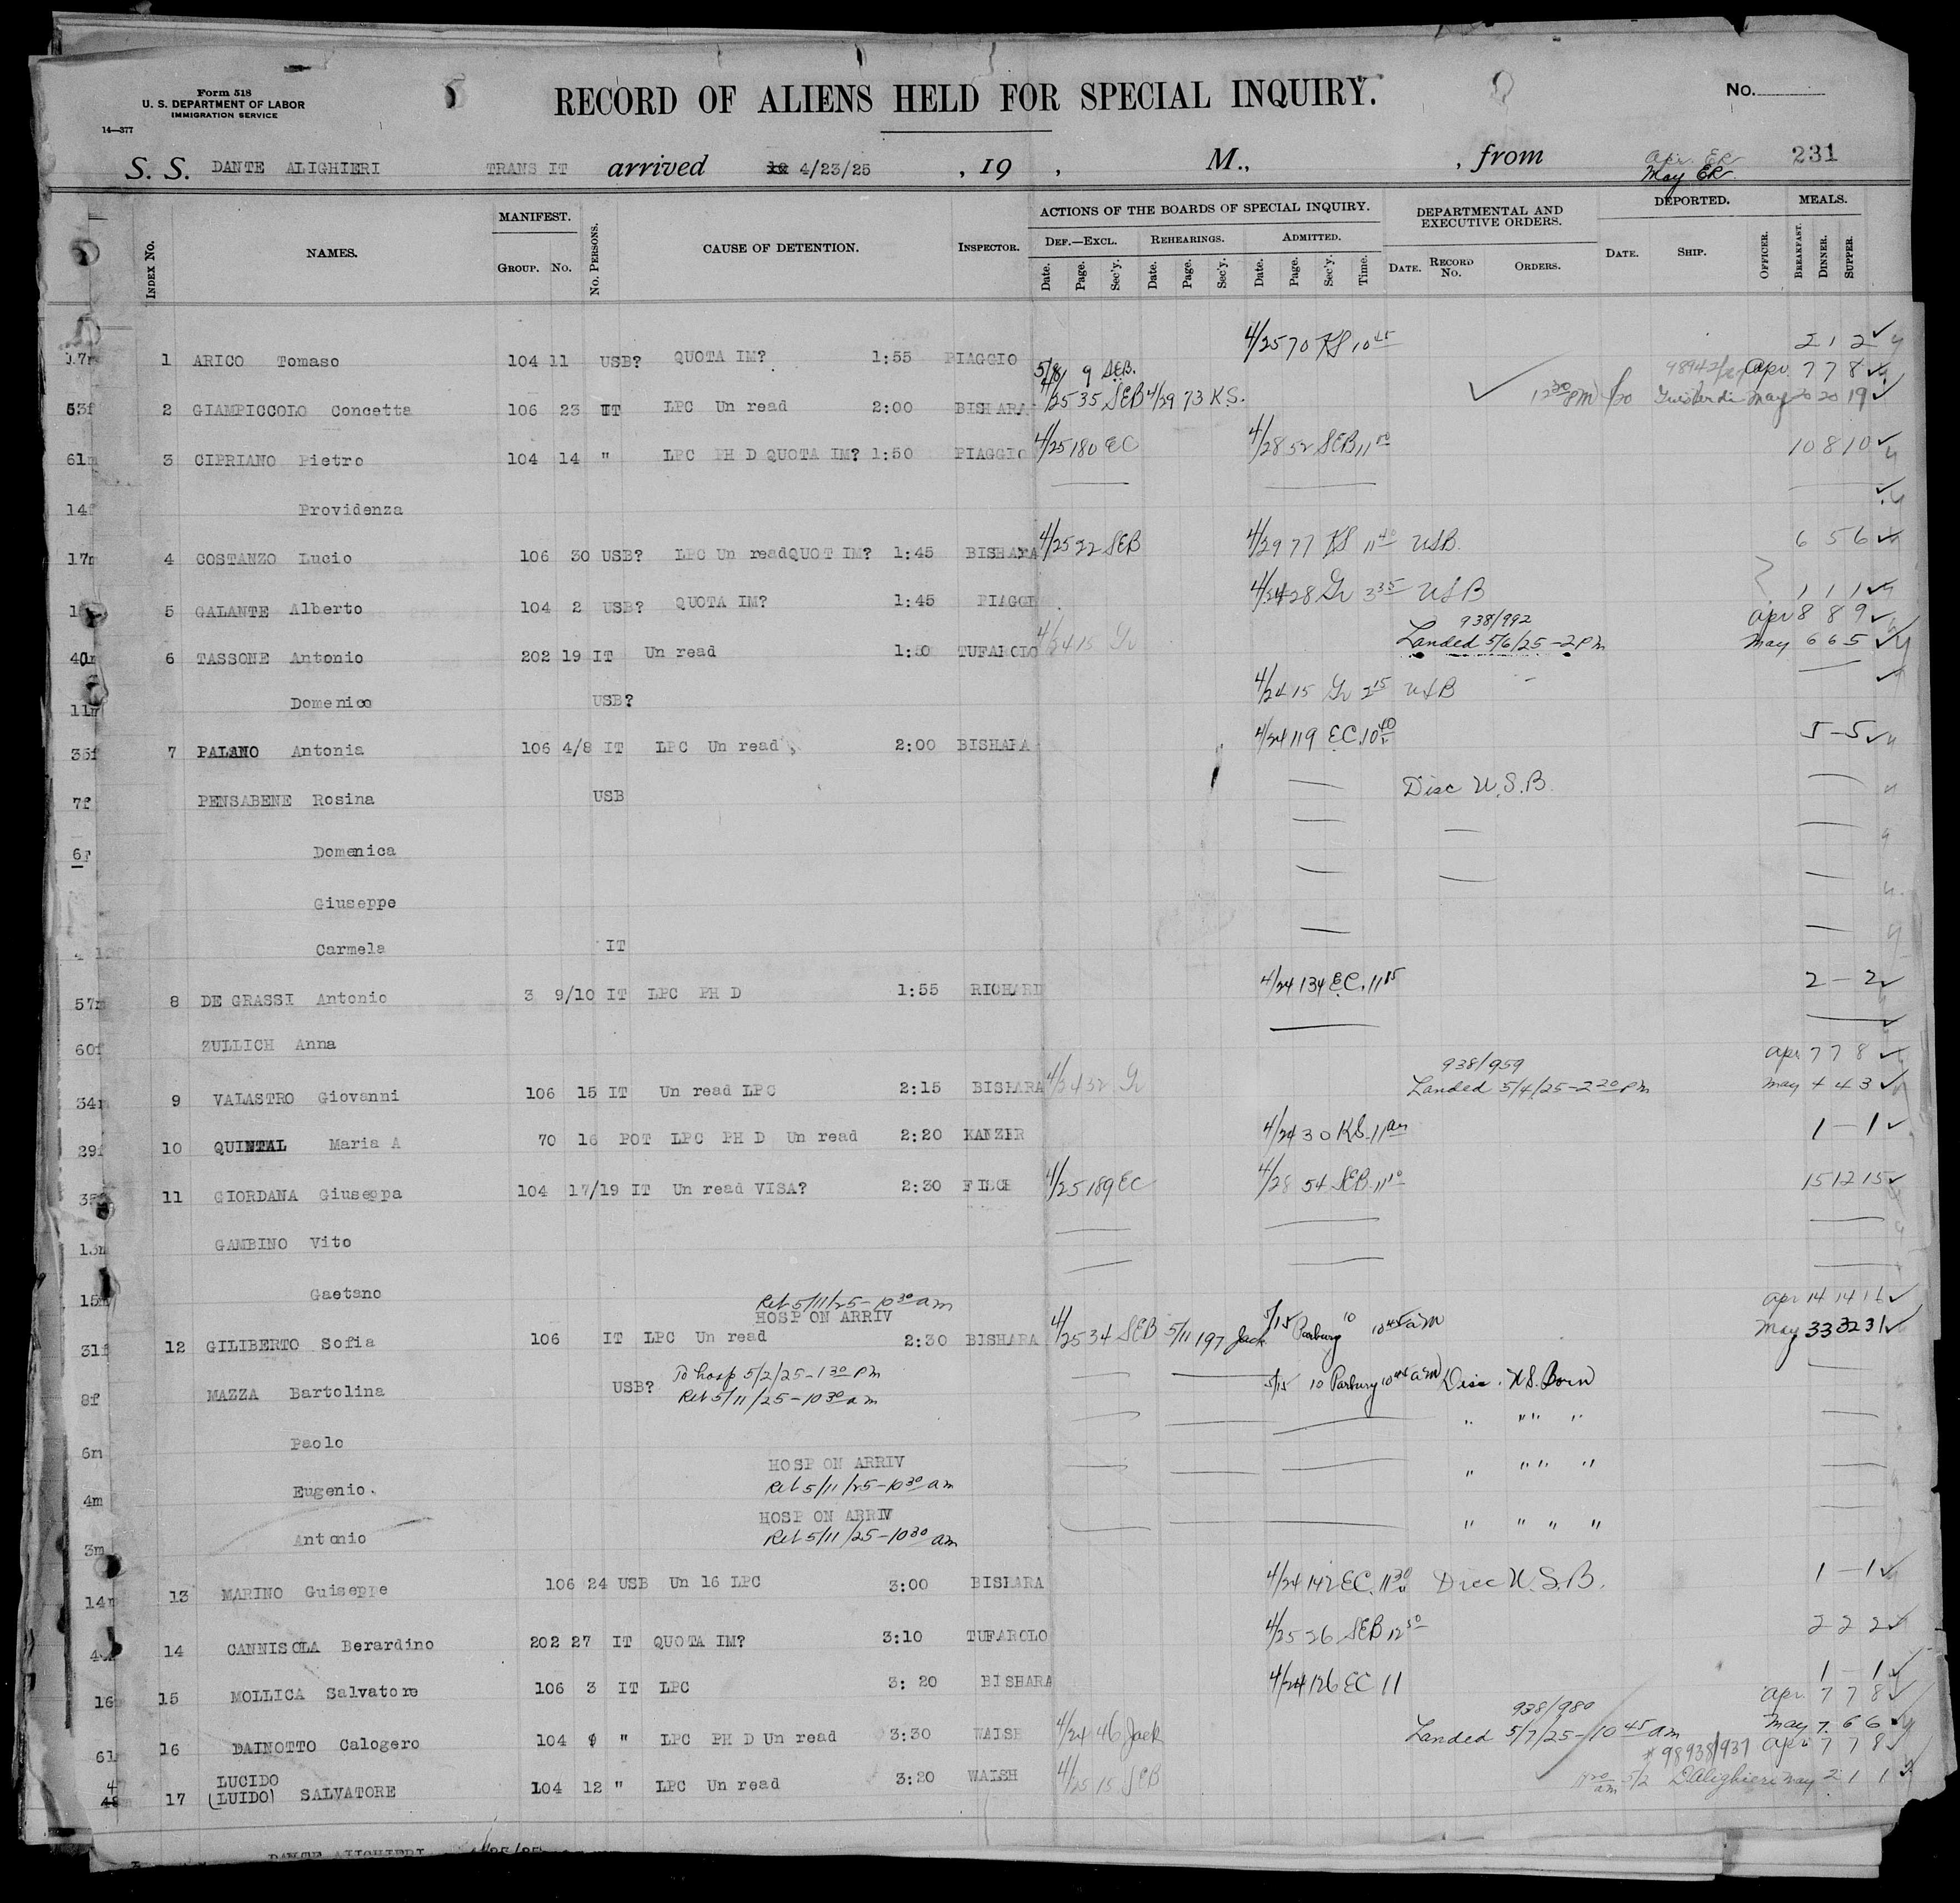 Form 518
U. S. DEPARTMENT OF LABOR
IMMIGRATION SERVICE
14—377
RECORD OF ALIENS HELD FOR SPECIAL INQUIRY.
No.
S. S. DANTE ALIGHIERI TRANS IT arrived 4/23/25 , 19 , M., , from Apr. ER 231
May ER
INDEX No. NAMES. MANIFEST. GROUP. No. No. PERSONS. CAUSE OF DETENTION. INSPECTOR. ACTIONS OF THE BOARDS OF SPECIAL INQUIRY. DEPARTMENTAL AND EXECUTIVE ORDERS. DEPORTED. MEALS.
DEF.—EXCL. REHEARINGS. ADMITTED.
Date. Page. Sec'y. Date. Page. Sec'y. Date. Page. Sec'y. Time. DATE. RECORD No. ORDERS. DATE. SHIP. OFFICER. BREAKFAST. DINNER. SUPPER.
17m 1 ARICO Tomaso 104 11 USB? QUOTA IM? 1:55 PIAGGIO 4/25 70 KS 10 45 2 1 2
5/8 9 SEB. Apr. 7 7 8
53f 2 GIAMPICCOLO Concetta 106 23 IT LPC Un read 2:00 BISHARA 4/25 35 SEB 4/29 73 K.S. 12 30 PM May 20 20 19
61m 3 CIPRIANO Pietro 104 14 " LPC PH D QUOTA IM? 1:50 PIAGGIO 4/25 180 EC 4/28 52 SEB 11 10 8 10
14f Providenza
17m 4 COSTANZO Lucio 106 30 USB? LPC Un read QUOT IM? 1:45 BISHARA 4/25 22 SEB 4/29 77 KS 11 40 USB. 6 5 6
5 GALANTE Alberto 104 2 USB? QUOTA IM? 1:45 PIAGGI 4/24 28 Gr 3 35 USB 1 1 1
938/992 Apr 8 8 9
40m 6 TASSONE Antonio 202 19 IT Un read 1:50 TUFAROLO 4/24 15 Gr Landed 5/6/25-2 Pm May 6 6 5
11m Domenico USB? 4/24 15 Gr 2 15 USB
35f 7 PALANO Antonia 106 4/8 IT LPC Un read 2:00 BISHARA 4/24 119 EC. 10 40 5 - 5
7f PENSABENE Rosina USB Disc U.S.B.
6f Domenica
Giuseppe
Carmela IT
57m 8 DE GRASSI Antonio 3 9/10 IT LPC PH D 1:55 RICHARD 4/24 134 E.C. 11 2 - 2
60f ZULLICH Anna
938/959 Apr 7 7 8
34m 9 VALASTRO Giovanni 106 15 IT Un read LPC 2:15 BISHARA 4/24 32 Gr Landed 5/4/25-2 20 Pm May 4 4 3
29f 10 QUINTAL Maria A 70 16 POT LPC PH D Un read 2:20 KANZER 4/24 30 KS. 11 am 1 - 1
11 GIORDANA Giuseppa 104 17/19 IT Un read VISA? 2:30 4/25 189 EC 4/28 54 SEB 11 10 15 12 15
13m GAMBINO Vito
15m Gaetano
Ret 5/11/25-10 30 am Apr 14 14 16
HOSP ON ARRIV
31f 12 GILIBERTO Sofia 106 IT LPC Un read 2:30 BISHARA 4/25 34 SEB 5/11 197 Jack 5/15 Parbury 10 10 45 am May 33 32 31
To hosp 5/2/25-1 30 Pm
8f MAZZA Bartolina USB? Ret 5/11/25-10 30 am 5/15 10 Parbury 10 45 am Disc. U.S. Born
6m Paolo " " " "
HOSP ON ARRIV
4m Eugenio. Ret 5/11/25-10 30 am " " " "
HOSP ON ARRIV
3m Antonio Ret 5/11/25-10 30 am " " " "
14m 13 MARINO Guiseppe 106 24 USB Un 16 LPC 3:00 BISHARA 4/24 142 EC. 11 30 Disc U.S.B. 1 - 1
14 CANNISOLA Berardino 202 27 IT QUOTA IM? 3:10 TUFAROLO 4/25 26 SEB 12 50 2 2 2
16 15 MOLLICA Salvatore 106 3 IT LPC 3:20 BISHARA 4/24 126 EC 11 1 - 1
938/980 Apr. 7 7 8
61 16 DAINOTTO Calogero 104 " LPC PH D Un read 3:30 WALSH 4/24 46 Jack Landed 5/7/25-10 45 am May 7. 6 6
98938/937 Apr 7 7 8
LUCIDO
17 (LUIDO) SALVATORE 104 12 " LPC Un read 3:20 WALSH 4/25 15 SEB 5/2 D Alighieri May 2 1 1
DANTE ALIGHIERI